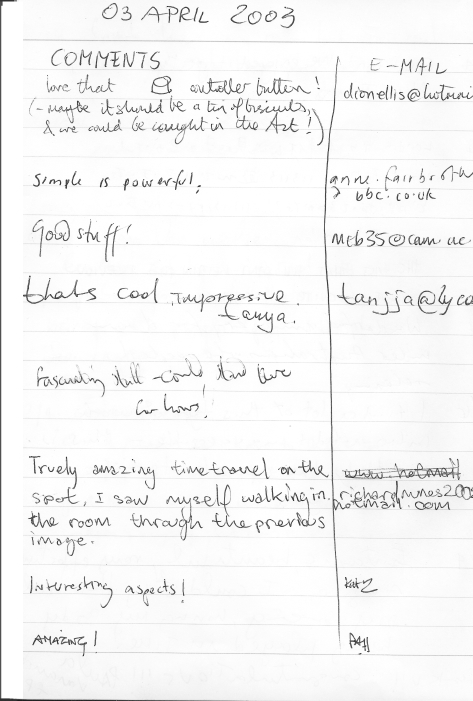 03 APRIL 2003
COMMENTS
E-MAIL
love that @ controller button!
(- maybe it should be a tin of biscuits,
& we could be caught in the Act!)
dionellis@hotmai
Simple is powerful.
anne.fairbroth
bbc.co.uk
Good stuff!
meb35@cam.ac
thats cool. Impressive.
tanya.
tanjja@lyco
Fascinating stuff - could stand here
for hours!
Truely amazing time travel on the
www.hotmail
spot, I saw myself walking in
richardnunes200
the room through the previous
hotmail.com
image.
Interesting aspects!
AMAZING!